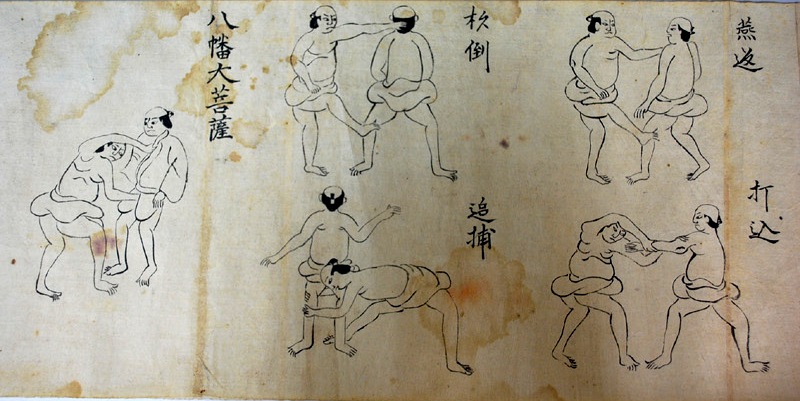 燕返
打込
杦倒
追捕
八幡大菩薩